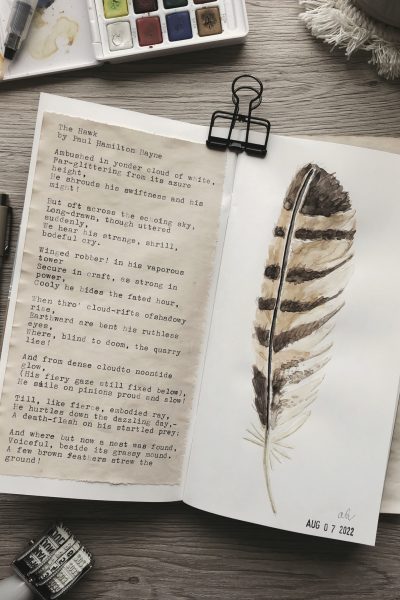 The Hawk
by Paul Hamilton Hayne
Ambushed in yonder cloud of white,
Far-glittering from its azure
height,
He shrouds his swiftness and his
might!
But oft across the echoing sky,
Long-drawn, though uttered
suddenly,
We hear his strange, shrill,
bodeful cry.
Winged robber! in his vaporous
tower
Secure in craft, as strong in
power,
Cooly he bides the fated hour,
When thro' cloud-rifts ofshadowy
rise,
Earthward are bent his ruthless
eyes,
Where, blind to doom, the quarry
lies!
And from dense cloudto noontide
glow,
(His fiery gaze still fixed below),
He sails on pinions proud and slow!
Till, like fierce, embodied ray,
He hurtles down the dazzling day,-
A death-flash on his startled prey;
And where but now a nest was found,
Voiceful, beside its grassy mound.
A few brown feathers strew the
ground!
AUG 07 2022